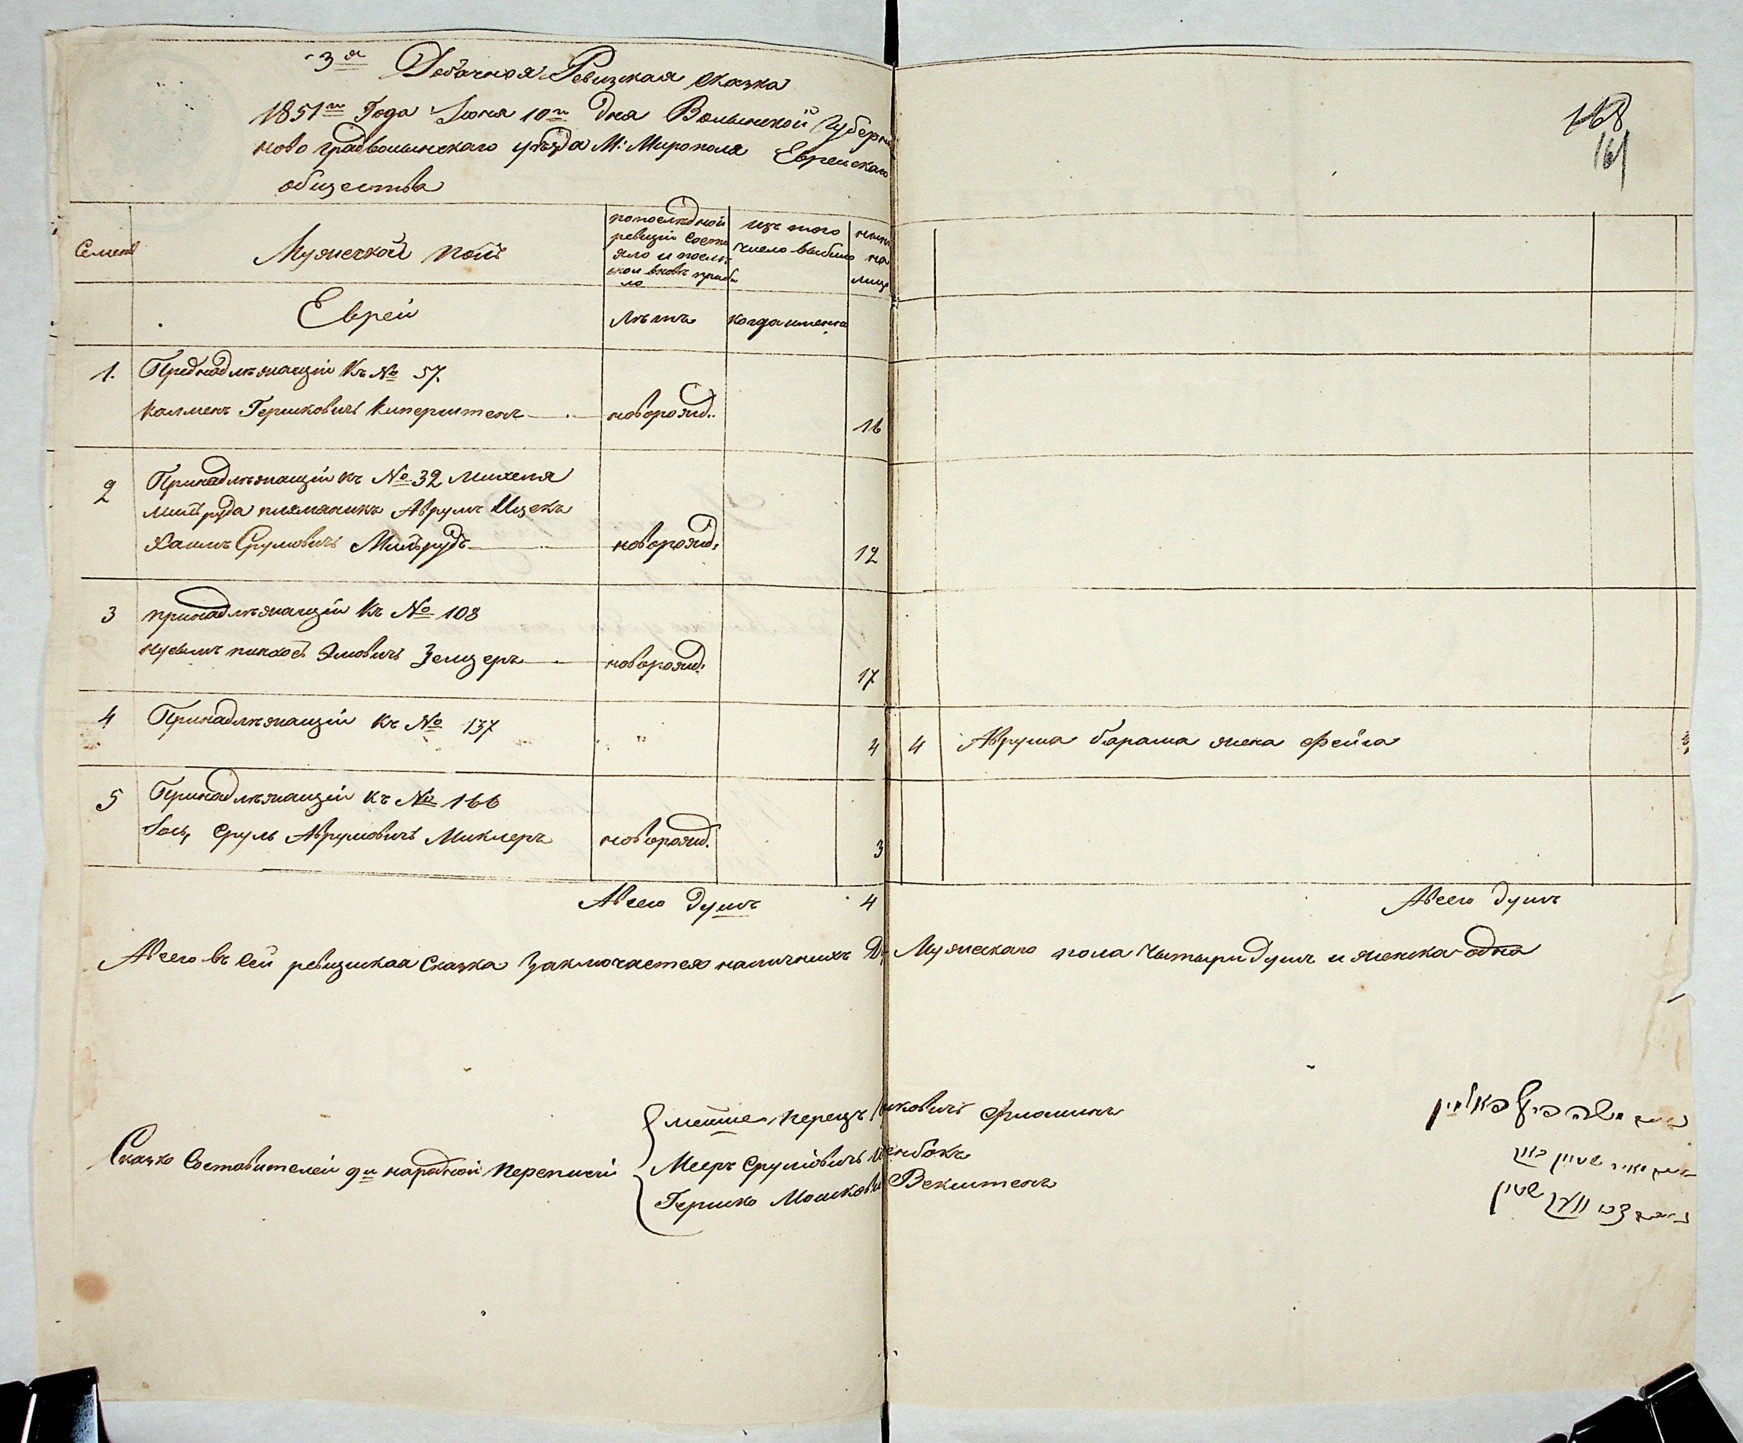 3я Добачная Ревизкая сказка
1851го Года Июня 10го Дня Волынской Губерн
ново градволынскаго уѣзда М: Мирополя Еврейскаго
общества
168
161
Семей
Мужечкой полъ
попоследной
ревизіи состо
яло и после
оной вновь прибы
ло
изъ того
число выбило
ныне
на
лицо
Еврей
лѣтъ
когда именно
1. Преднадлежащій къ № 57.
Калменъ Гершковичъ Киперштенъ новорожд. 16
2 Принадлежащій къ № 32 Михеля
Митьруда племяникъ Аврумъ Ицекъ
Хаимъ Срулювичъ Митьрудъ новорожд. 12
3 принадлежащій къ № 108
Нусымъ пинхосъ Элювичъ Зельцеръ новорожд. 17
4 Принадлежащій къ № 137 " " 4
4 Аврума барама жена Фейга
5 Принадлежащій къ № 166
Іось Сруль Аврумовичъ Миклеръ новорожд. 3
Авсего душъ 4
Авсего душъ
Авсего въ сей ревизкаа Сказка Заключается наличныхъ Мужескаго пола Чытыри душъ и женска одна
Сказко Составителей 9й народной переписи
Мейше Перецъ
Мееръ Срулювичъ
Гершко Мошкови Векштенъ
משה פרץ
מאיר
צבי וועקשטיין